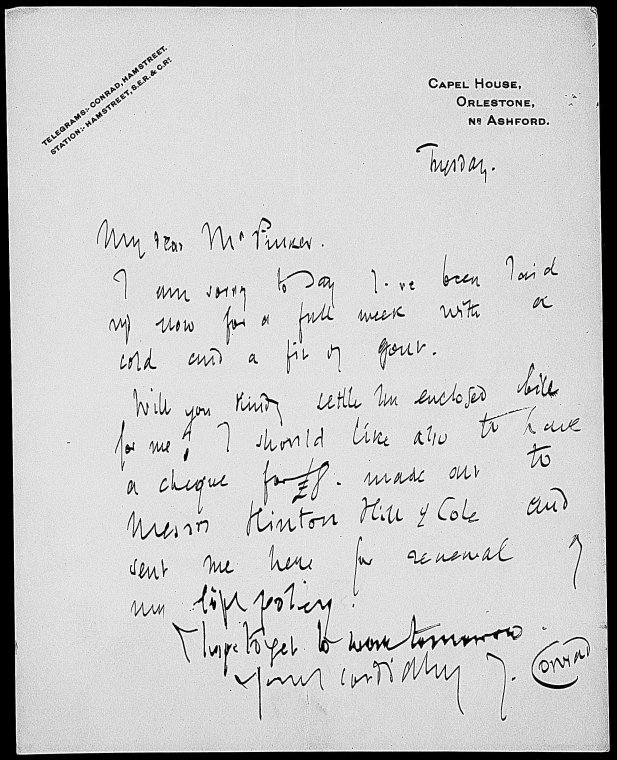 TELEGRAMS:- CONRAD, HAMSTREET.
STATION:- HAMSTREET, S.E.R. & C.Rʸ.
CAPEL HOUSE,
ORLESTONE,
Nᴿ ASHFORD.
Tuesday.
My dear Mr Pinker.
I am sorry to say I've been laid
up now for a full week with a
cold and a fit of gout.
Will you kindly settle the enclosed bill
for me? I should like also to have
a cheque for £8. made out to
Messrs Hinton Hill & Cole and
sent me here for renewal of
my life policy.
I hope to get to work tomorrow.
Yours cordially J. Conrad